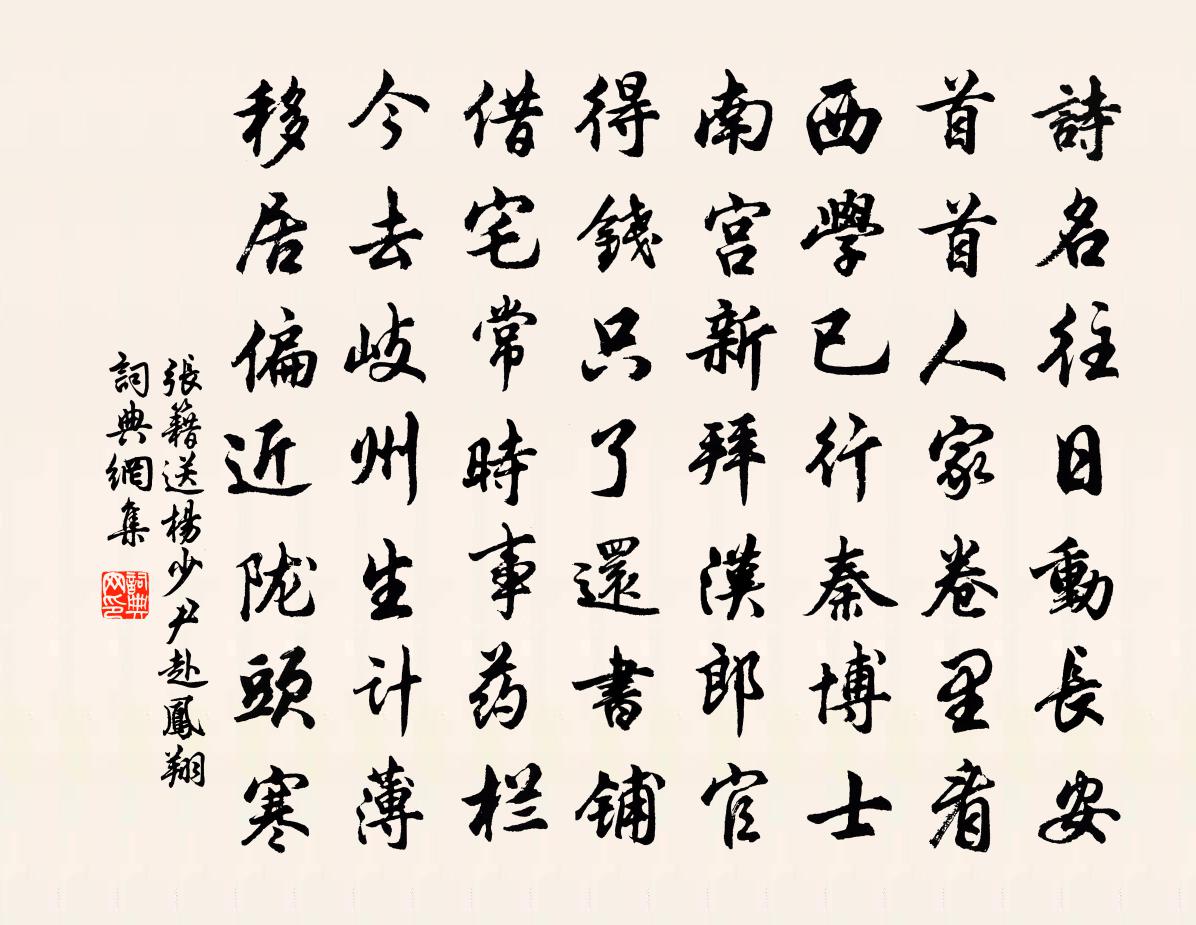 詩名往日動長安
首首人家卷里看
西學已行秦博士
南宮新拜漢郎官
得錢只了還書鋪
借宅常時事药栏
今去岐州生计薄
移居偏近陇頭寒
張籍送楊少尹赴鳳翔
詞典網集
詞典网印